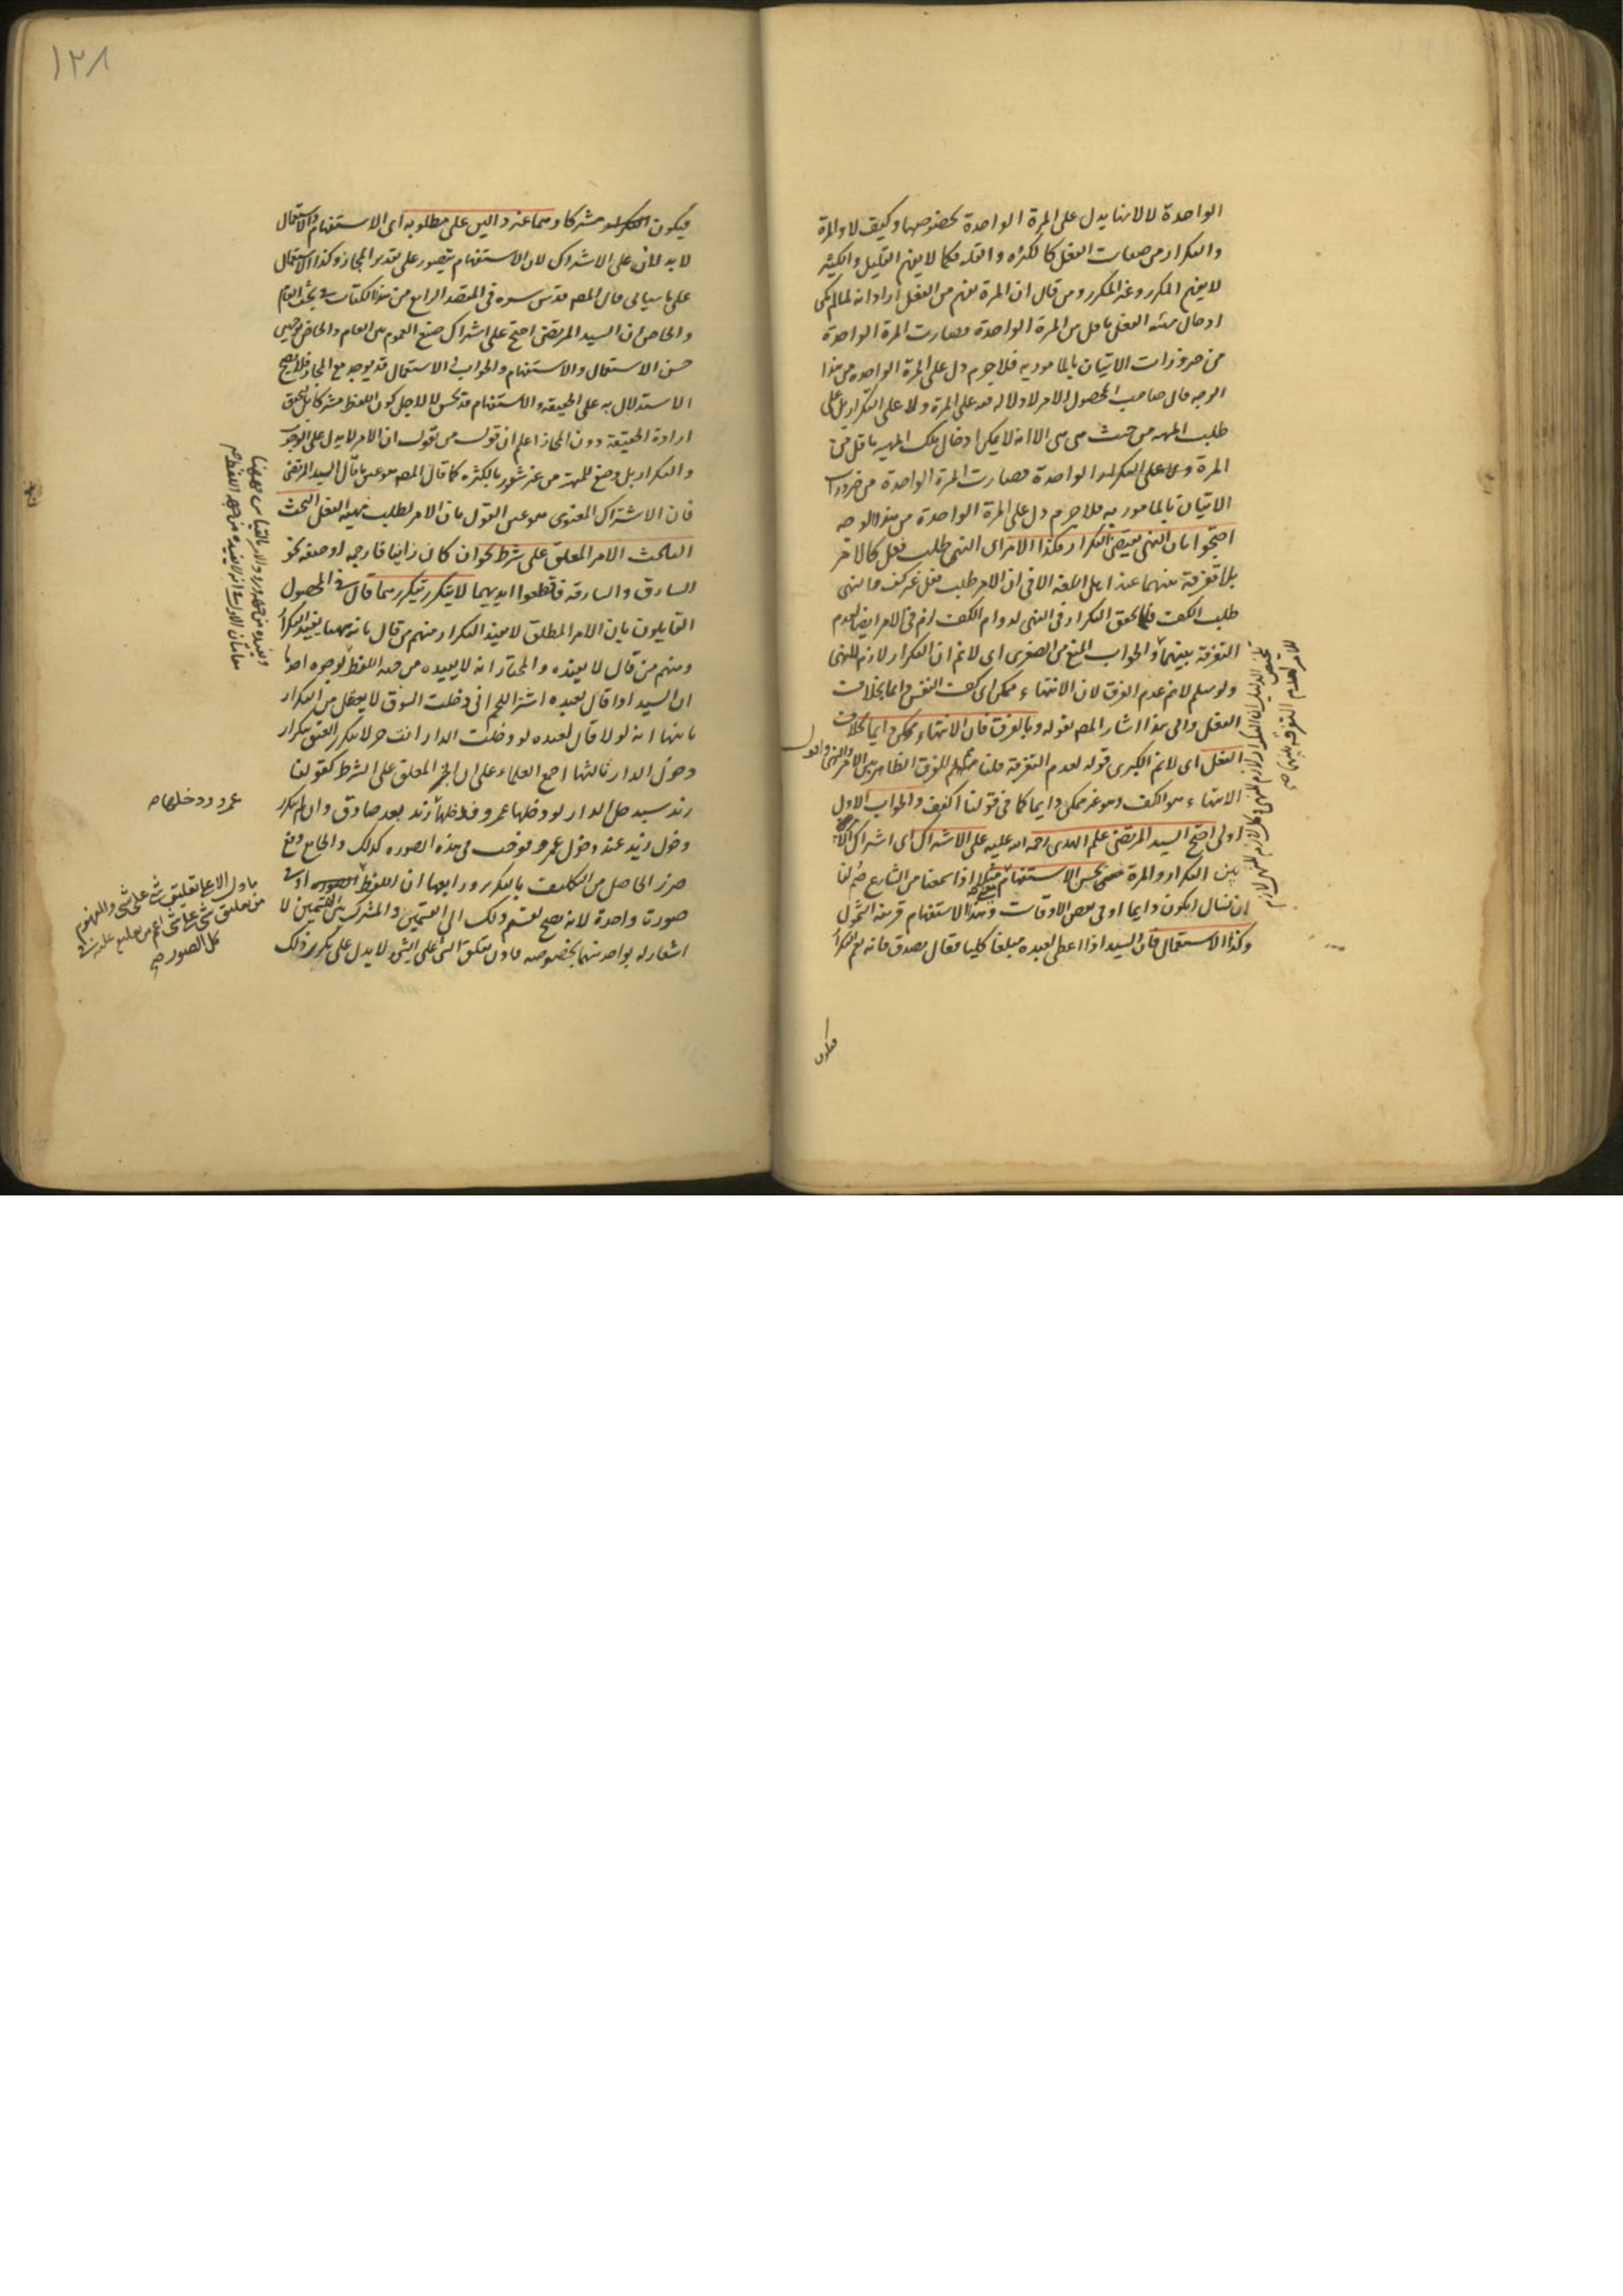 الواحدة لا لانها يدل على المرة الواحدة بخصوصها وكيف لا والمرة
والتكرار من صفات الفعل كالكثرة والقلة فكما لا يفهم القليل والكثير
لا يفهم المكرر وغير المكرر ومن قال ان المرة تفهم من الفعل اراد انه لما لم يمكن
ادخال مهية الفعل باقل من المرة الواحدة فصارت المرة الواحدة
من ضرورات الاتيان بالمامور به فلا جرم دل على المرة الواحدة من هذا
الوجه قال صاحب المحصول الامر لا دلالة فيه على المرة ولا على التكرار بل على
طلب المهية من حيث هي هي الا انه لا يمكن ادخال تلك المهية باقل من
المرة الواحدة فصارت المرة الواحدة من ضرورات
الاتيان بالمامور به فلا جرم دل على المرة الواحدة من هذا الوجه
احتجوا بان النهى يقتضى التكرار فكذا الامر اى النهى طلب فعل كالامر
بلا تفرقة بينهما عند اهل اللغة الا فى ان الامر طلب فعل غير كف والنهى
طلب الكف فلما تحقق التكرار فى النهى لدوام الكف لزم فى الامر ايضا لعدم
التفرقة بينهما والجواب المنع من الصغرى اى لا نم ان التكرار لازم للنهى
ولو سلم لا نم عدم الفرق لان الانتهاء ممكن اى كف النفس دائما بخلاف
الفعل والى هذا اشار المص بقوله وبالفرق فان الانتهاء ممكن دائما بخلاف
الفعل اى لا نم الكبرى قوله لعدم التفرقة قلنا للفرق الظاهر بين الامر والنهى واقول
الانتهاء هو الكف وهو غير ممكن دائما كما فى قولنا اكفف والجواب الاول
اولى احتج السيد المرتضى علم الهدى رحمه الله عليه على الاشتراك اى اشتراك الامر
بين التكرار والمرة بحسن الاستفهام مثلا اذا سمعنا من الشارع صم لنا
ان نسال ايكون دائما او فى بعض الاوقات وهذا الاستفهام قرينة الشمول
وكذا الاستعمال فان السيد اذا اعطى لعبده مبلغا كليا فقال تصدق فانه يعم التكرار
فيكون
تلخيص الدليل ان التكرار لازم للنهى وكل لازم للنهى لازم
للامر لعدم التفرقة بينهما صح
١٢٨
فيكون مشتركا وهما غير دالين على مطلوبه اى الاستفهام والاستعمال
لا يدلان على الاشتراك لان الاستفهام يتصور على تقدير المجاز وكذا الاستعمال
على ما سياتى قال المص قدس سره فى المقصد الرابع من هذا الكتاب فى بحث العام
والخاص ان السيد المرتضى احتج على اشتراك صيغ العموم بين العام والخاص بوجهين
حسن الاستعمال والاستفهام والجواب ان الاستعمال قد يوجد مع المجاز فلا يصح
الاستدلال به على الحقيقة والاستفهام قد يحسن لا لاجل كون اللفظ مشتركا بل لتحقق
ارادة الحقيقة دون المجاز اعلم ان قول من يقول ان الامر لا يدل على الوحدة
والتكرار بل وضع للمهية من غير شعور بالكثرة كما قال المص هو عين ما قال السيد المرتضى
فان الاشتراك المعنوى هو عين القول بان الامر لطلب مهية الفعل البحث
الثالث الامر المعلق على شرط نحو ان كان زانيا فارجمه او صفة نحو
السارق والسارقة فاقطعوا ايديهما لا يتكرر بتكررهما قال فى المحصول
القايلون بان الامر المطلق لا يفيد التكرار منهم من قال بانه ههنا يفيد التكرار
ومنهم من قال لا يفيده والمختار انه لا يفيده من جهة اللفظ لوجوه احدها
ان السيد اذا قال لعبده اشتر اللحم ان دخلت السوق لا يعقل من التكرار
ثانيها انه لو قال لعبده لو دخلت الدار انت حر لا يتكرر العتق بتكرار
دخول الدار ثالثها اجمع العلماء على ان الخبر المعلق على الشرط كقولنا
زيد سيدخل الدار لو دخلها عمرو فدخلها زيد بعد صادق وان لم يتكرر
دخول زيد عند دخول عمرو فوجب فى هذه الصورة كذلك والجامع دفع
ضرر الحاصل من التكليف بالتكرر ورابعها ان اللفظ او فى
صورة واحدة لانه يصح تقسيم ذلك الى القسمين والمشترك بين القسمين لا
اشعار له بواحد منهما بخصوصه فاذن تعلق الشئ على الشئ لا يدل على تكرر ذلك
ويفيده من جهة ورود الامر بالقياس فههنا
مقامان الاول انه لا يفيده من جهة اللفظ صح
عمرو ودخلها صح
ما دل الا على تعليق شئ على شئ والمفهوم
من تعليق شئ على شئ اعم من تعليقه عليه فى
كل الصور صح